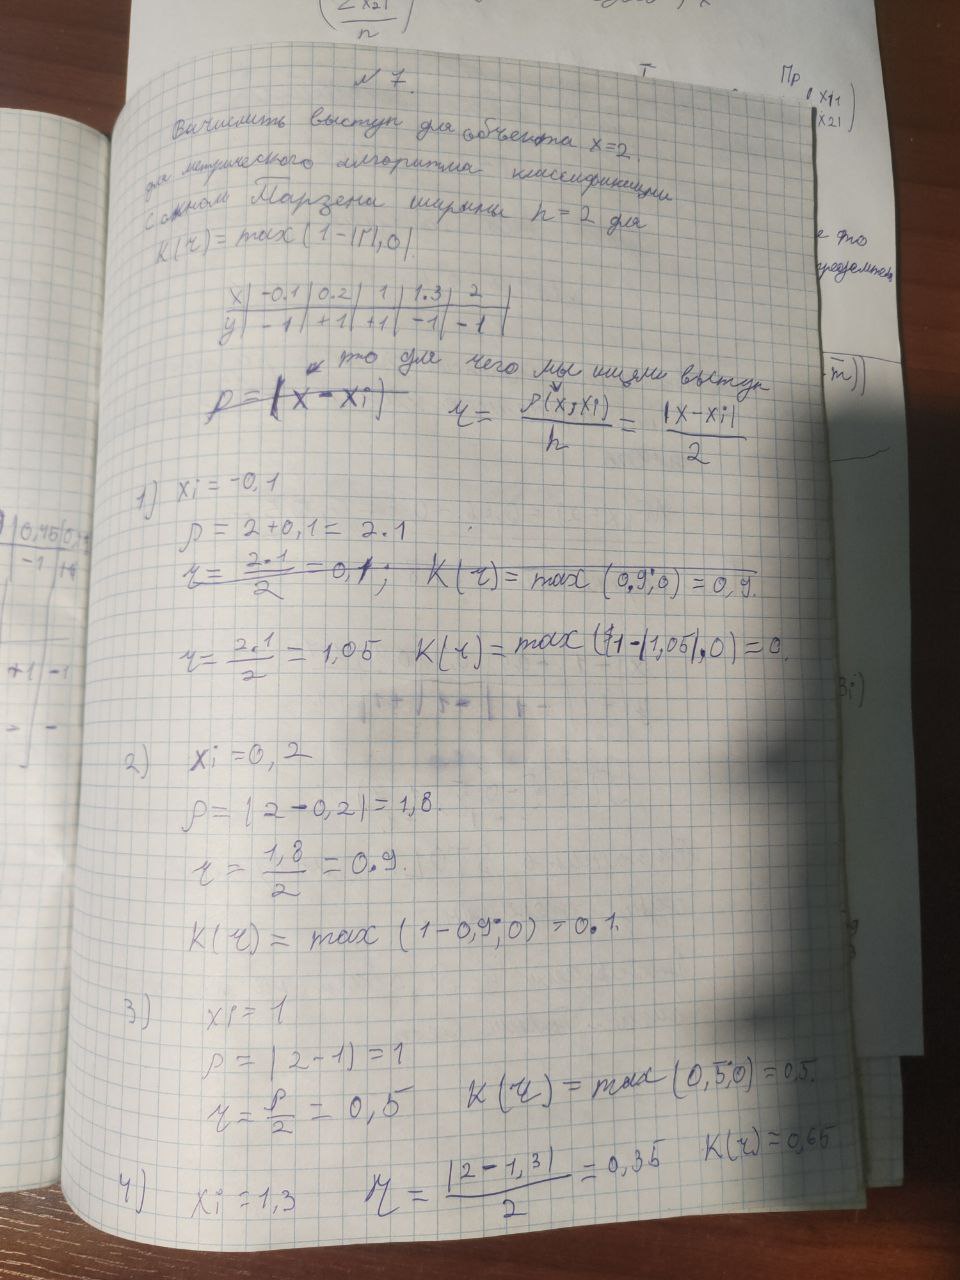 Σx2i
n
Т
Пр
x11
x21
N 7.
Вычислить выступ для объекта x=2.
для метрического алгоритма классификации
с окном Парзена ширины h=2 для
K(r) = max (1-|r|, 0)
x | -0.1 | 0.2 | 1 | 1.3 | 2
y | -1 | +1 | +1 | -1 | -1
то для чего мы ищем выступ
ρ = |x - xi|
r = ρ(x, xi) / h = |x - xi| / 2
1) xi = -0,1
ρ = 2+0,1 = 2.1
r = 2.1 / 2 = 0,1; K(r) = max (0.9; 0) = 0,9.
r = 2.1 / 2 = 1,05 K(r) = max (1-|1,05|, 0) = 0.
2) xi = 0,2
ρ = |2-0,2| = 1,8.
r = 1,8 / 2 = 0.9.
K(r) = max (1-0,9; 0) = 0.1.
3) xi = 1
ρ = |2-1| = 1
r = ρ / 2 = 0,5 K(r) = max (0,5; 0) = 0,5.
4) xi = 1,3 r = |2-1,3| / 2 = 0,35 K(r) = 0,65
-1
+1 | -1